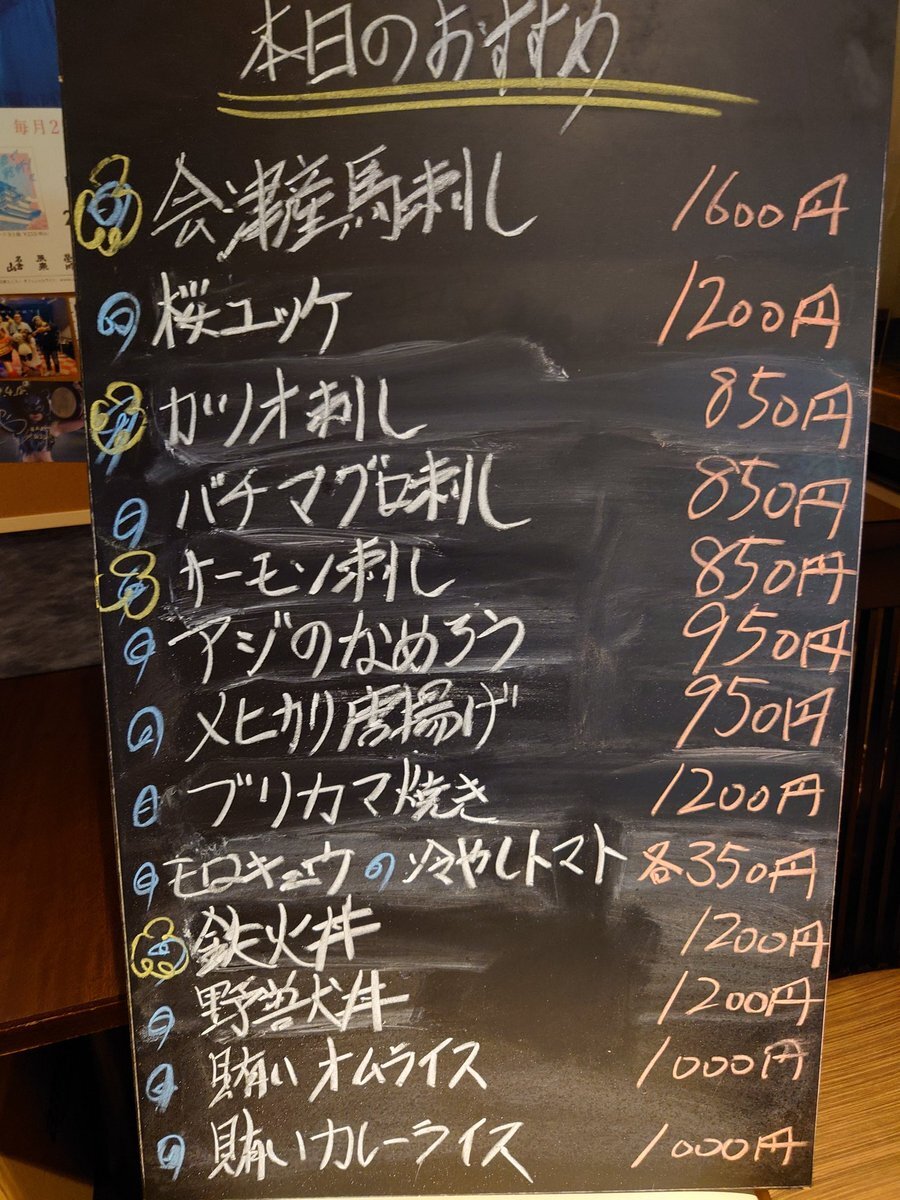 本日のおすすめ
会津産馬刺し 1600円
桜ユッケ 1200円
カツオ刺し 850円
バチマグロ刺し 850円
サーモン刺し 850円
アジのなめろう 950円
メヒカリ唐揚げ 950円
ブリカマ焼き 1200円
モロキュウ 冷やしトマト 各350円
鉄火丼 1200円
野獣丼 1200円
賄いオムライス 1000円
賄いカレーライス 1000円
毎月2